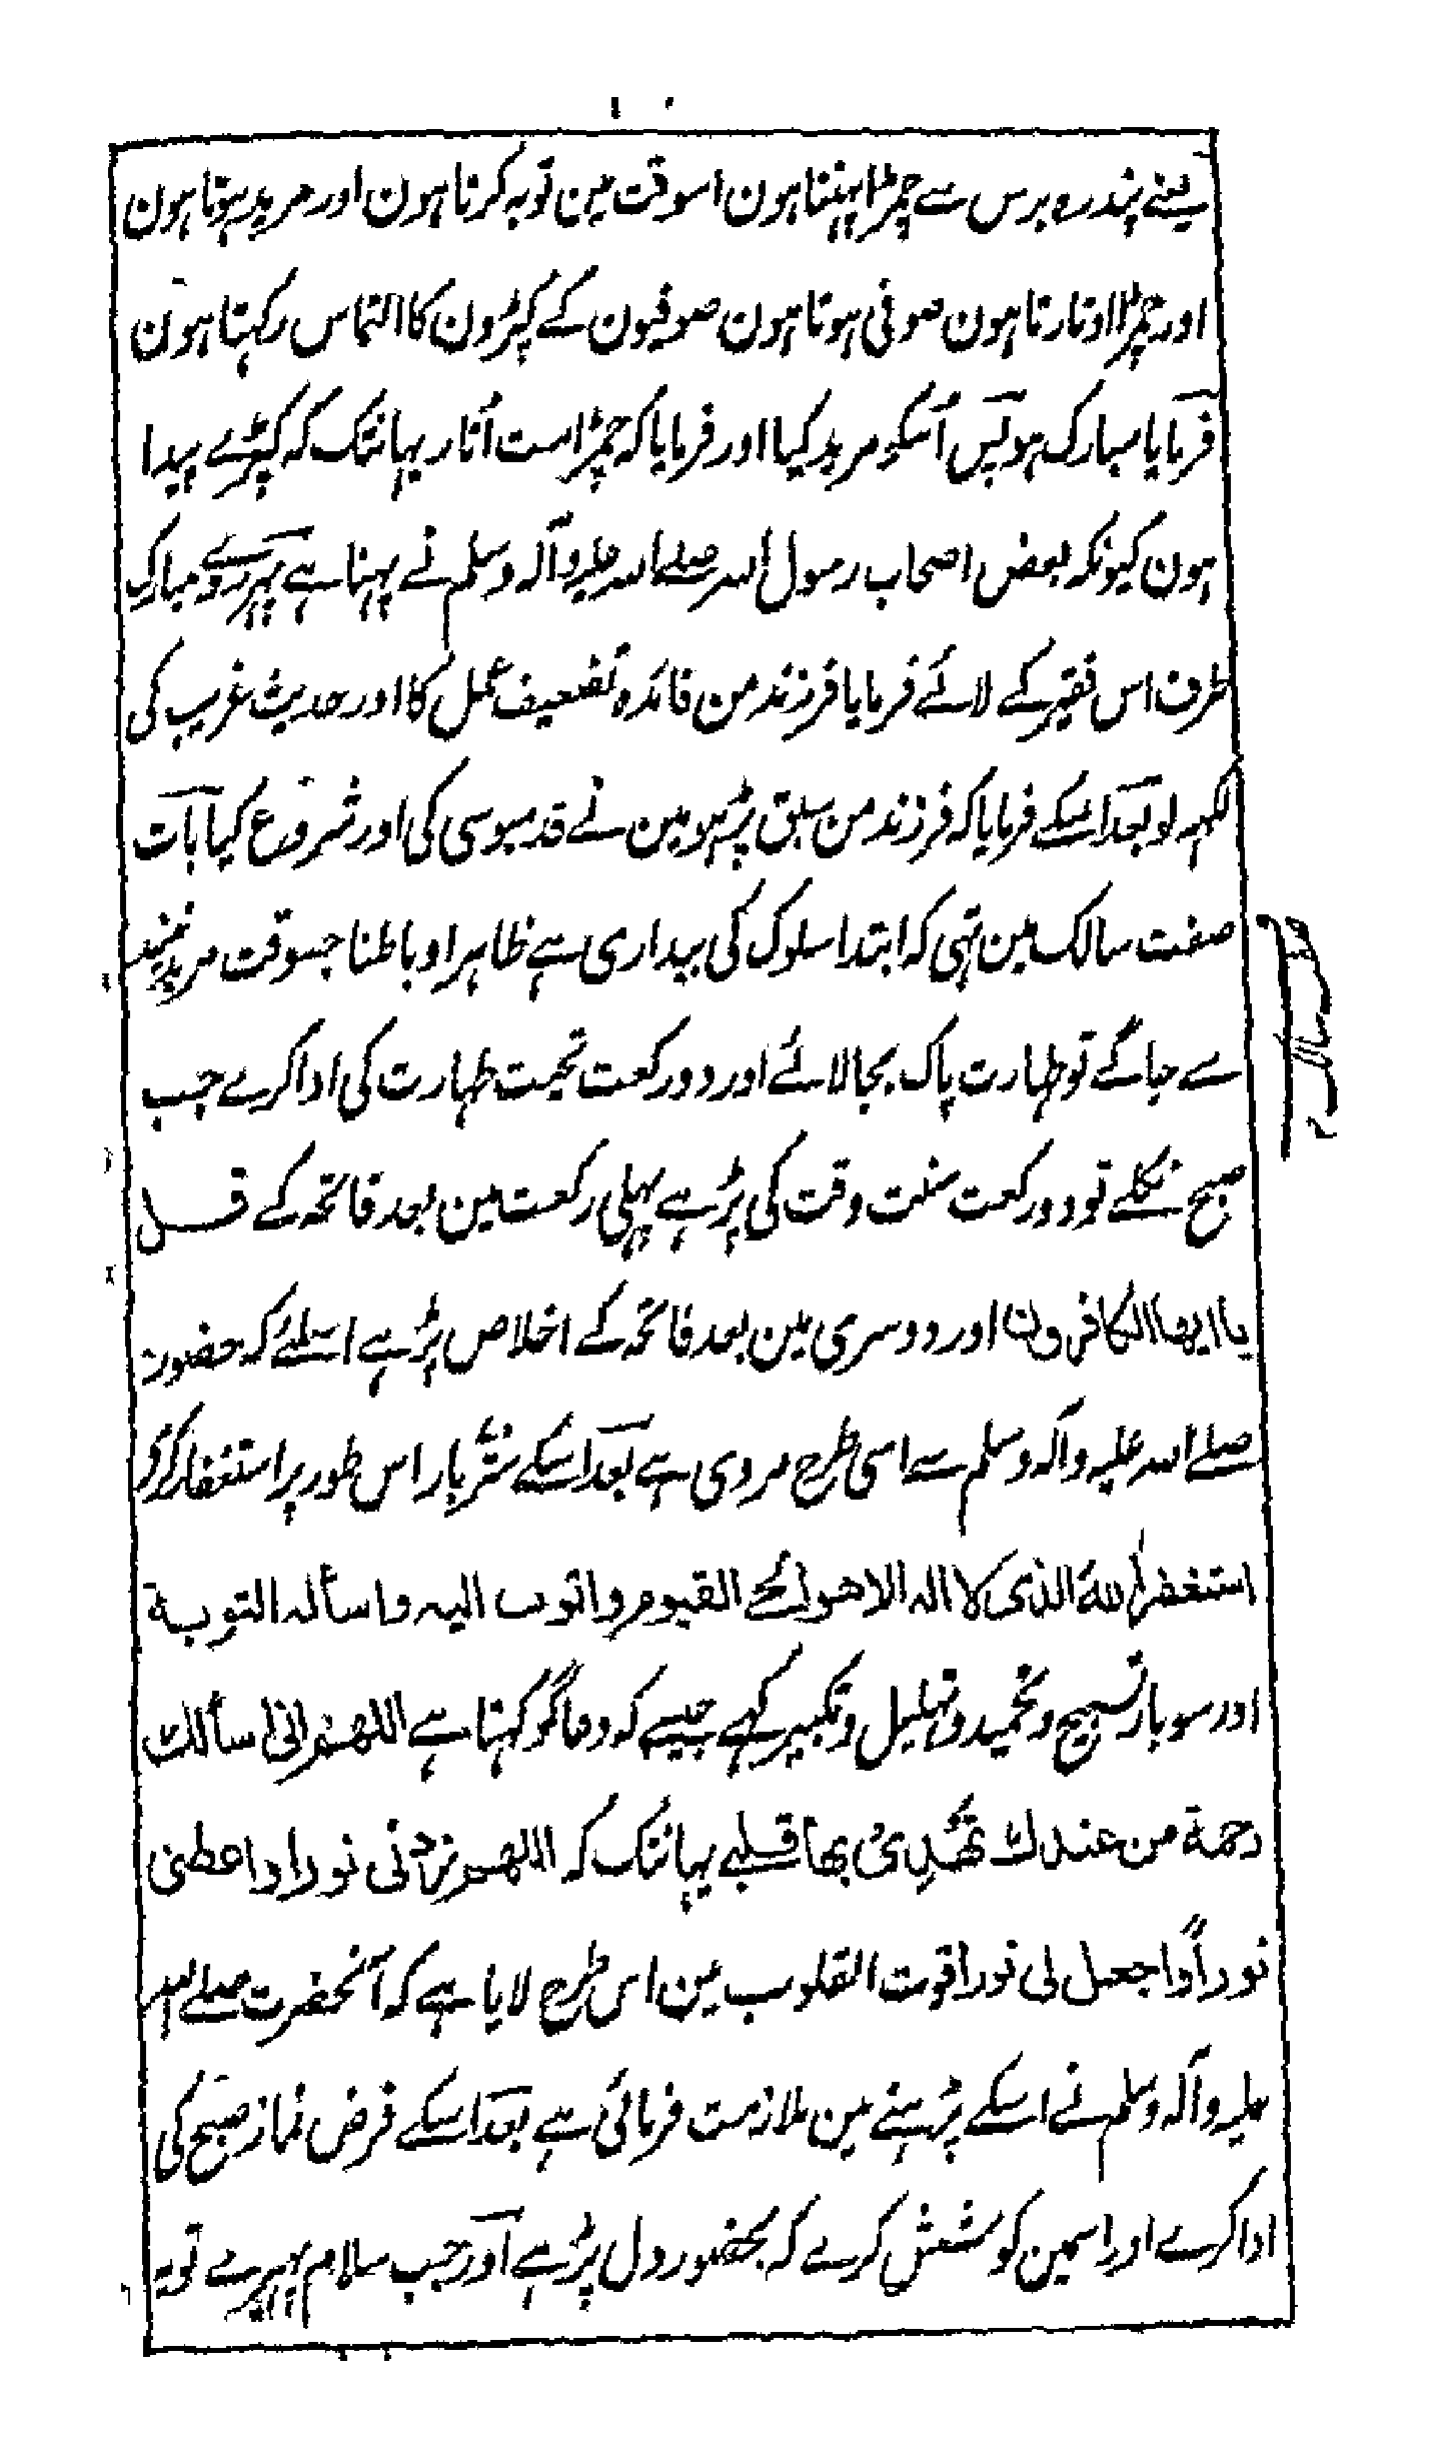 یعنے پندرہ برس سے چمڑا پہنتا ہون اسوقت مین توبہ کرتا ہون اور مرید ہوتا ہون
اور چمڑا اوتارتا ہون صوفی ہوتا ہون صوفیون کے کپڑون کا التماس رکہتا ہون
فرمایا مبارک ہو پس اُسکو مرید کیا اور فرمایا کہ چمڑا مت اُتار یہانتک کہ کپڑے پیدا
ہون کیونکہ بعض اصحاب رسول اللہ صلے اللہ علیہ وآلہ وسلم نے پہنا ہے پہر روے مبارک
طرف اس فقیر کے لائے فرمایا فرزند من فائدہ تضعیف عمل کا اور حدیث غریب کی
لکہہ لو بعد اسکے فرمایا کہ فرزند من سبق پڑہو مین نے قدمبوسی کی اور شروع کیا بات
صفت سالک مین تہی کہ ابتدا سلوک کی بیداری ہے ظاہرا و باطنا جسوقت مرید نیند
سے جاگے تو طہارت پاک بجا لائے اور دو رکعت تحیت طہارت کی ادا کرے جب
صبح نکلے تو دو رکعت سنت وقت کی پڑہے پہلی رکعت مین بعد فاتحہ کے قل
یا ایھا الکافرون اور دوسری مین بعد فاتحہ کے اخلاص پڑہے اسلئے کہ حضور
صلے اللہ علیہ وآلہ وسلم سے اسی طرح مروی ہے بعد اسکے ستّر بار اس طور پر استغفار کرے
استغفر اللہ الذی لا الہ الا ھو الحی القیوم واتوب الیہ واسألہ التوبة
اور سو بار تسبیح و تحمید و تہلیل و تکبیر کہے جیسے کہ دعاگو کہتا ہے اللھم انی اسألک
رحمة من عندک تھدی بھا قلبے یہانتک کہ اللھم زدنی نورا واعطنی
نوراً واجعل لی نورا قوت القلوب مین اس طرح لایا ہے کہ آنحضرت صلے اللہ
علیہ وآلہ وسلم نے اسکے پڑہنے مین ملازمت فرمائی ہے بعد اسکے فرض نماز صبح کی
ادا کرے اور اسمین کوشش کرے کہ بحضور دل پڑہے اور جب سلام پہیرے تو یہ